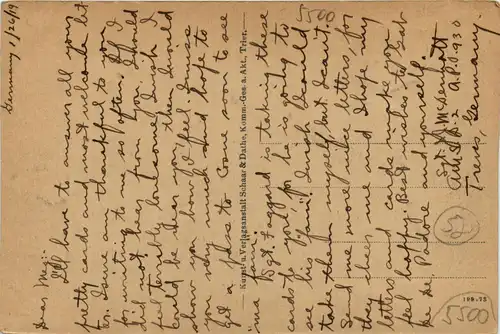 Germany 1/26/19
Dear Meg:-
I'll have to answer all your
pretty cards and most welcome let
ters. I am so thankful to you
for writing to me so often. If I
did not hear from you I should
feel terribly lonesome. I wish I
could be near you then I would
show you how I feel. I miss
you very much and hope to
get a pass to Come soon to see
ma
Kunst- u. Verlagsanstalt Schaar & Dathe, Komm.-Ges. a. Akt., Trier.
Sgt. is taking these
cards to you for he is going to
see his girl. I wish I could
take them myself but I can't.
Send me more nice letters for
they cheer me and I hope my
letters and cards make you
feel happy. Best wishes to Gab
be De Padove and yourself.
Sgt. J. J.
A.P.O. 930
Treves, Germany.
109.75
5500
52
5500